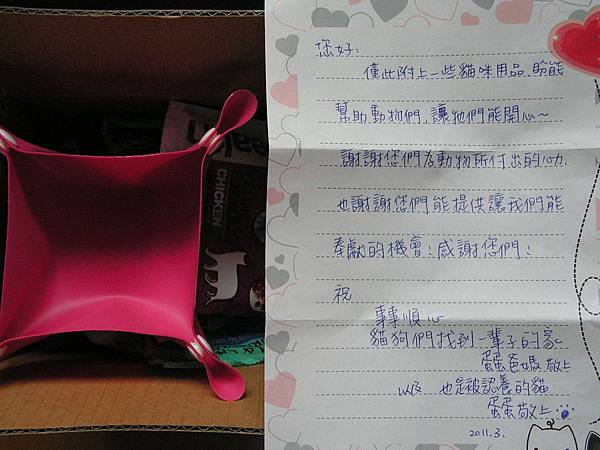 您好:
僅此附上一些貓咪用品,盼能
幫助動物們,讓牠們能開心~
謝謝您們為動物所付出的心力,
也謝謝您們能提供讓我們能
奉獻的機會:感謝您們:
祝
事事順心
貓狗們找到一輩子的家
蛋蛋爸媽敬上
以及 也是被認養的貓
蛋蛋敬上
2011.3.
CHICKEN